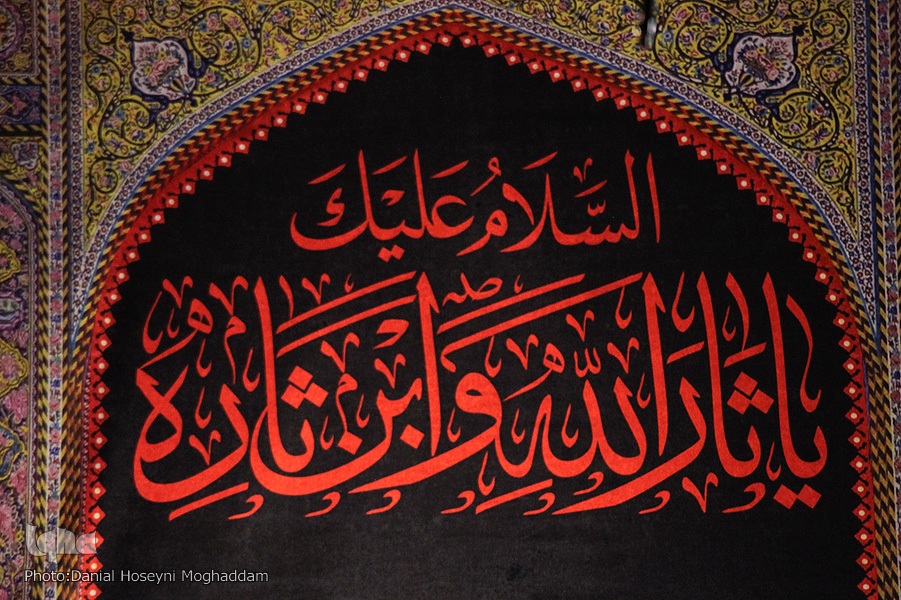 السَّلَامُ عَلَيْكَ
يا ثارَ اللّٰهِ وَابْنَ ثارِهُ
iqna
Photo:Danial Hoseyni Moghaddam